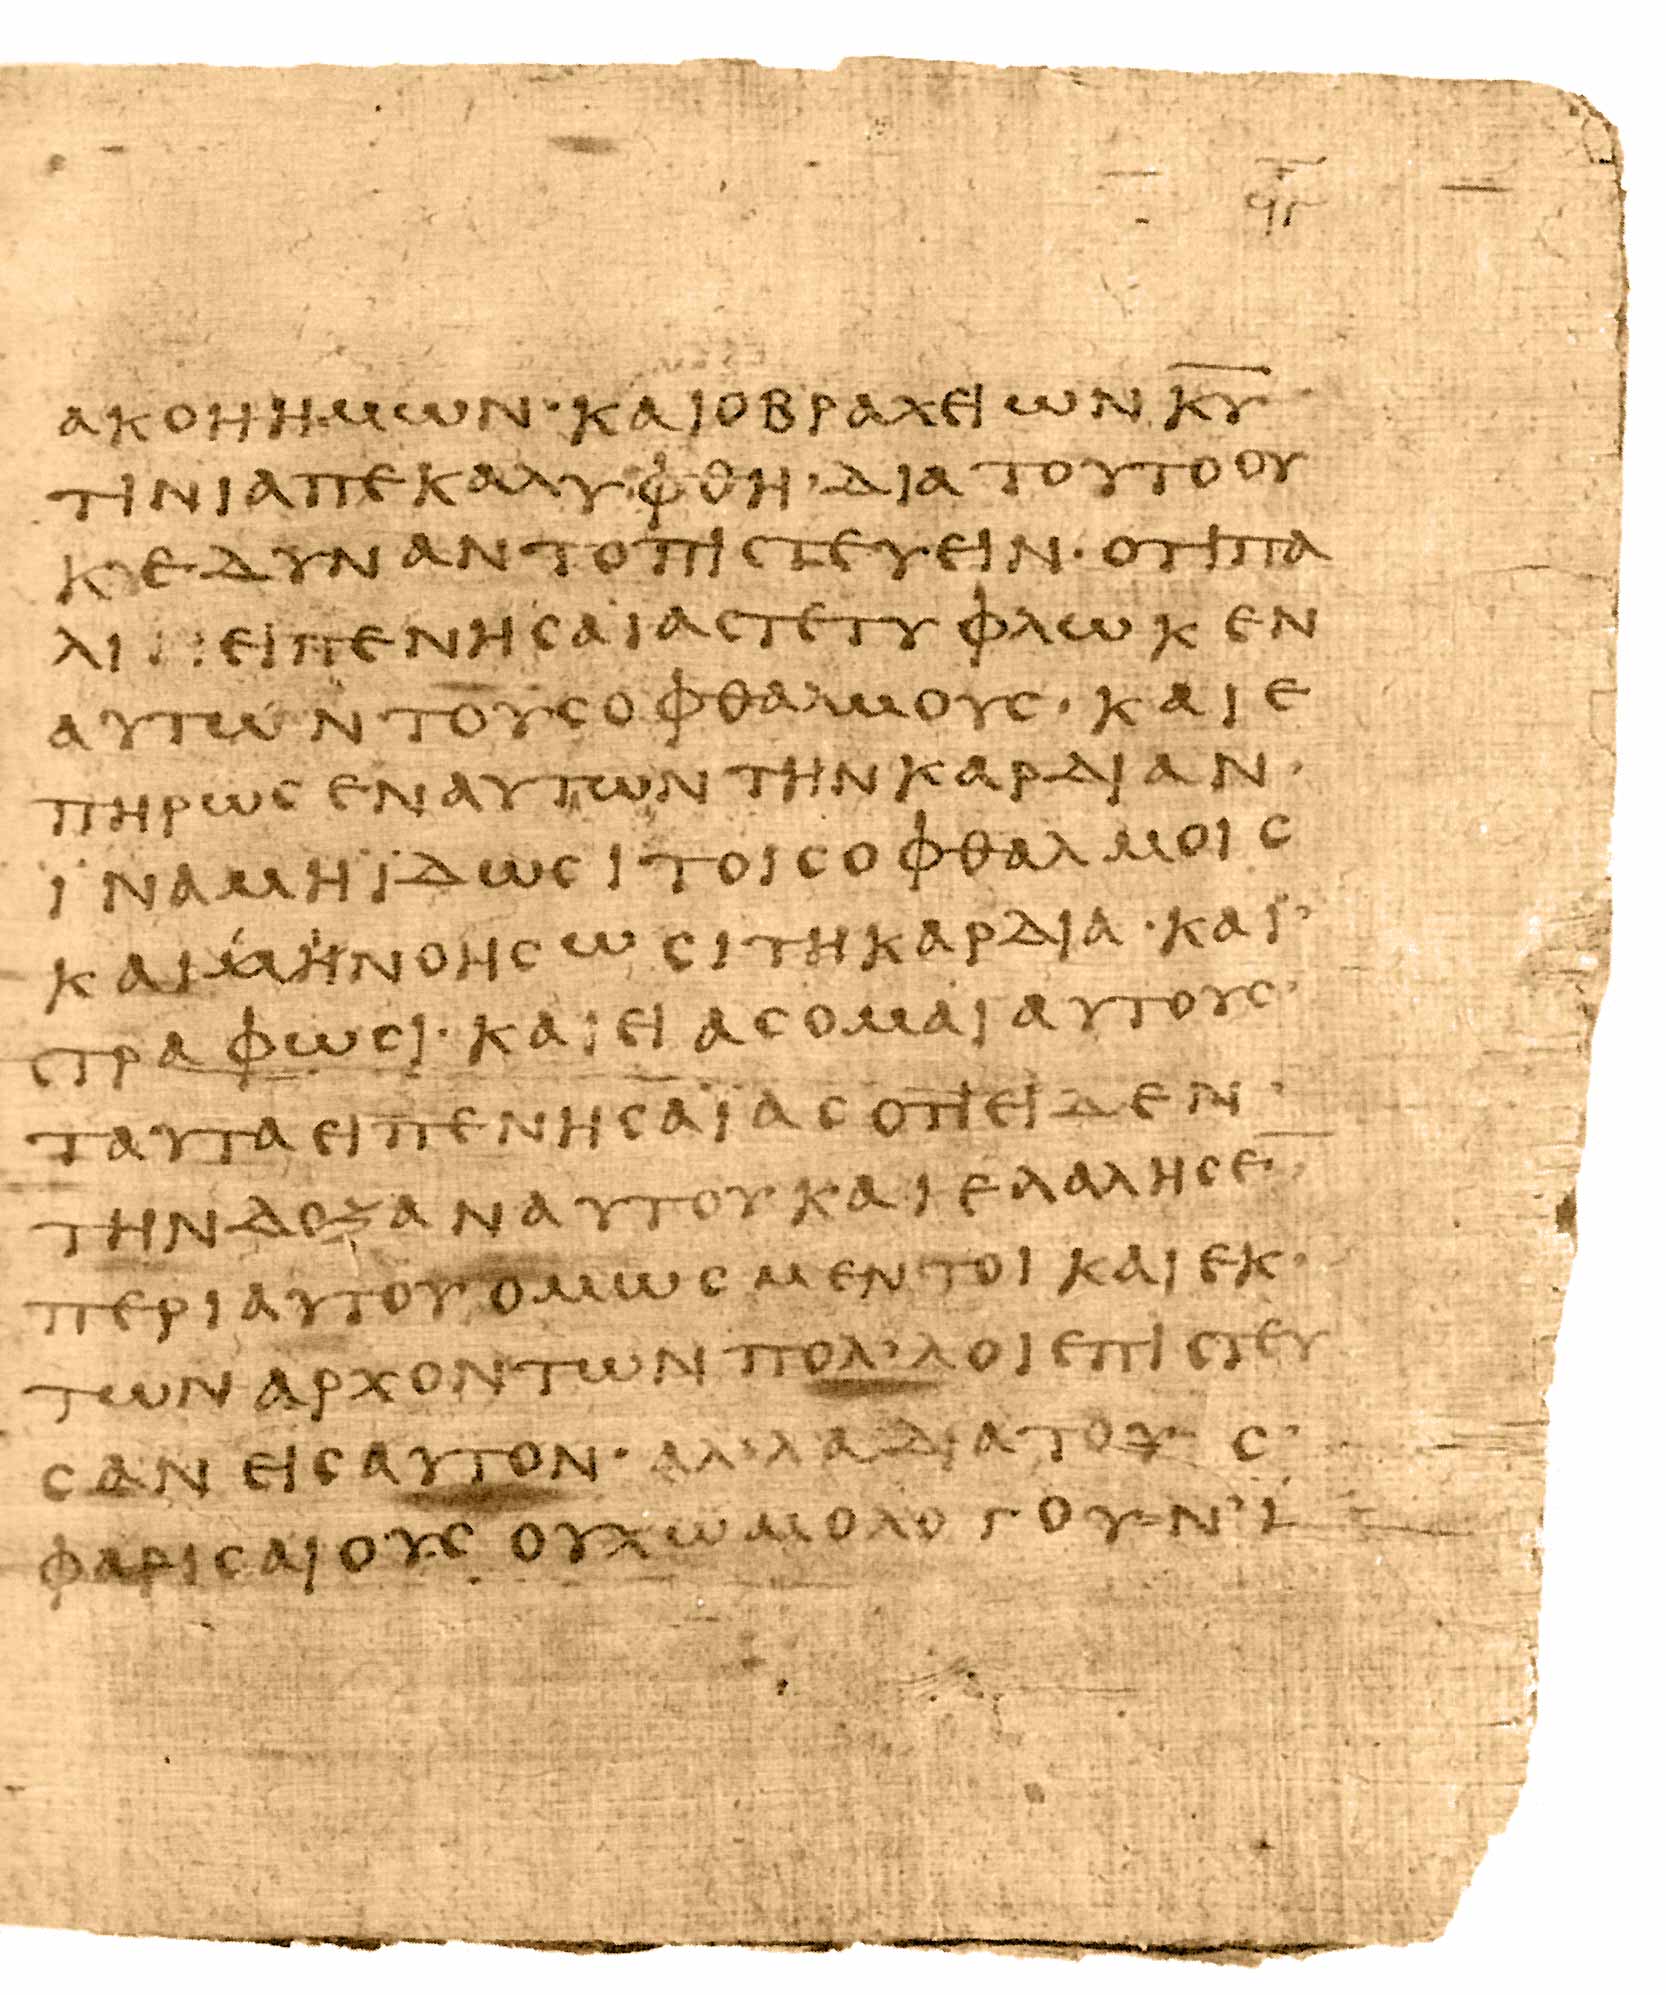 ϥγ
ακοη ημων· και ο βραχειων κυ
τινι απεκαλυφθη· δια τουτο ου
κ εδυναντο πιστευειν· οτι πα
λι ειπεν ησαιας τετυφλωκεν
αυτων τους οφθαλμους· και ε
πηρωσεν αυτων την καρδιαν·
ϊνα μη ϊδωσι τοις οφθαλμοις
και μη νοησωσι τη καρδια· και
στραφωσι· και ειασομαι αυτους·
ταυτα ειπεν ησαϊας οτι ειδεν
την δοξαν αυτου και ελαλησε
περι αυτου ομως μεντοι και εκ
των αρχοντων πολ᾽λοι επιστευ
σαν εις αυτον· αλ᾽λα δια τους
φαρισαιους ουχ ωμολογουν ϊ